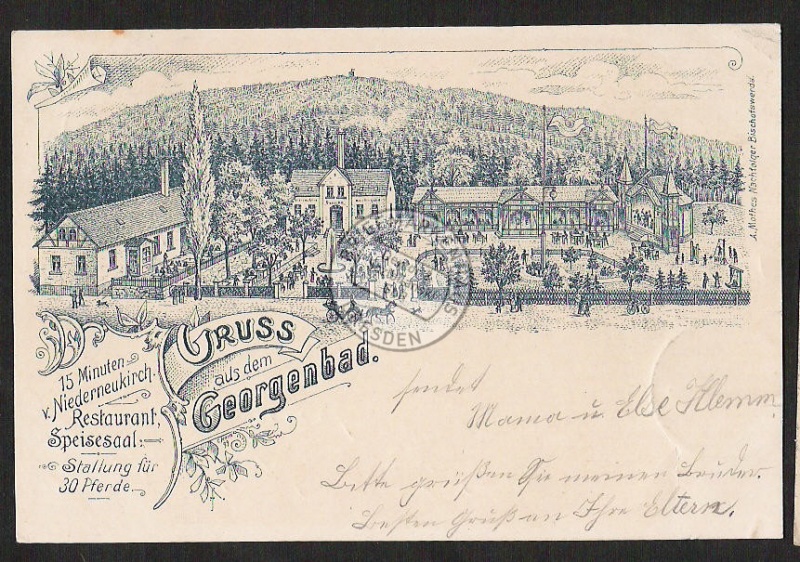 A. Mathes Nachfolger Bischofswerda.
GRUSS
aus dem
Georgenbad.
15 Minuten
v. Niederneukirch.
Restaurant,
Speisesaal.
Stallung für
30 Pferde.
sendet
Mama u. Else Klemm.
Bitte grüßen Sie meinen Bruder.
Besten Gruß an Ihre Eltern.
DRESDEN